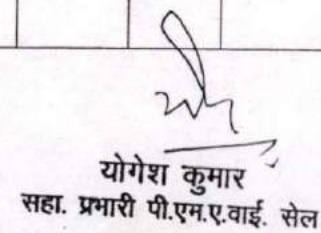 योगेश कुमार
सहा. प्रभारी पी.एम.ए.वाई. सेल